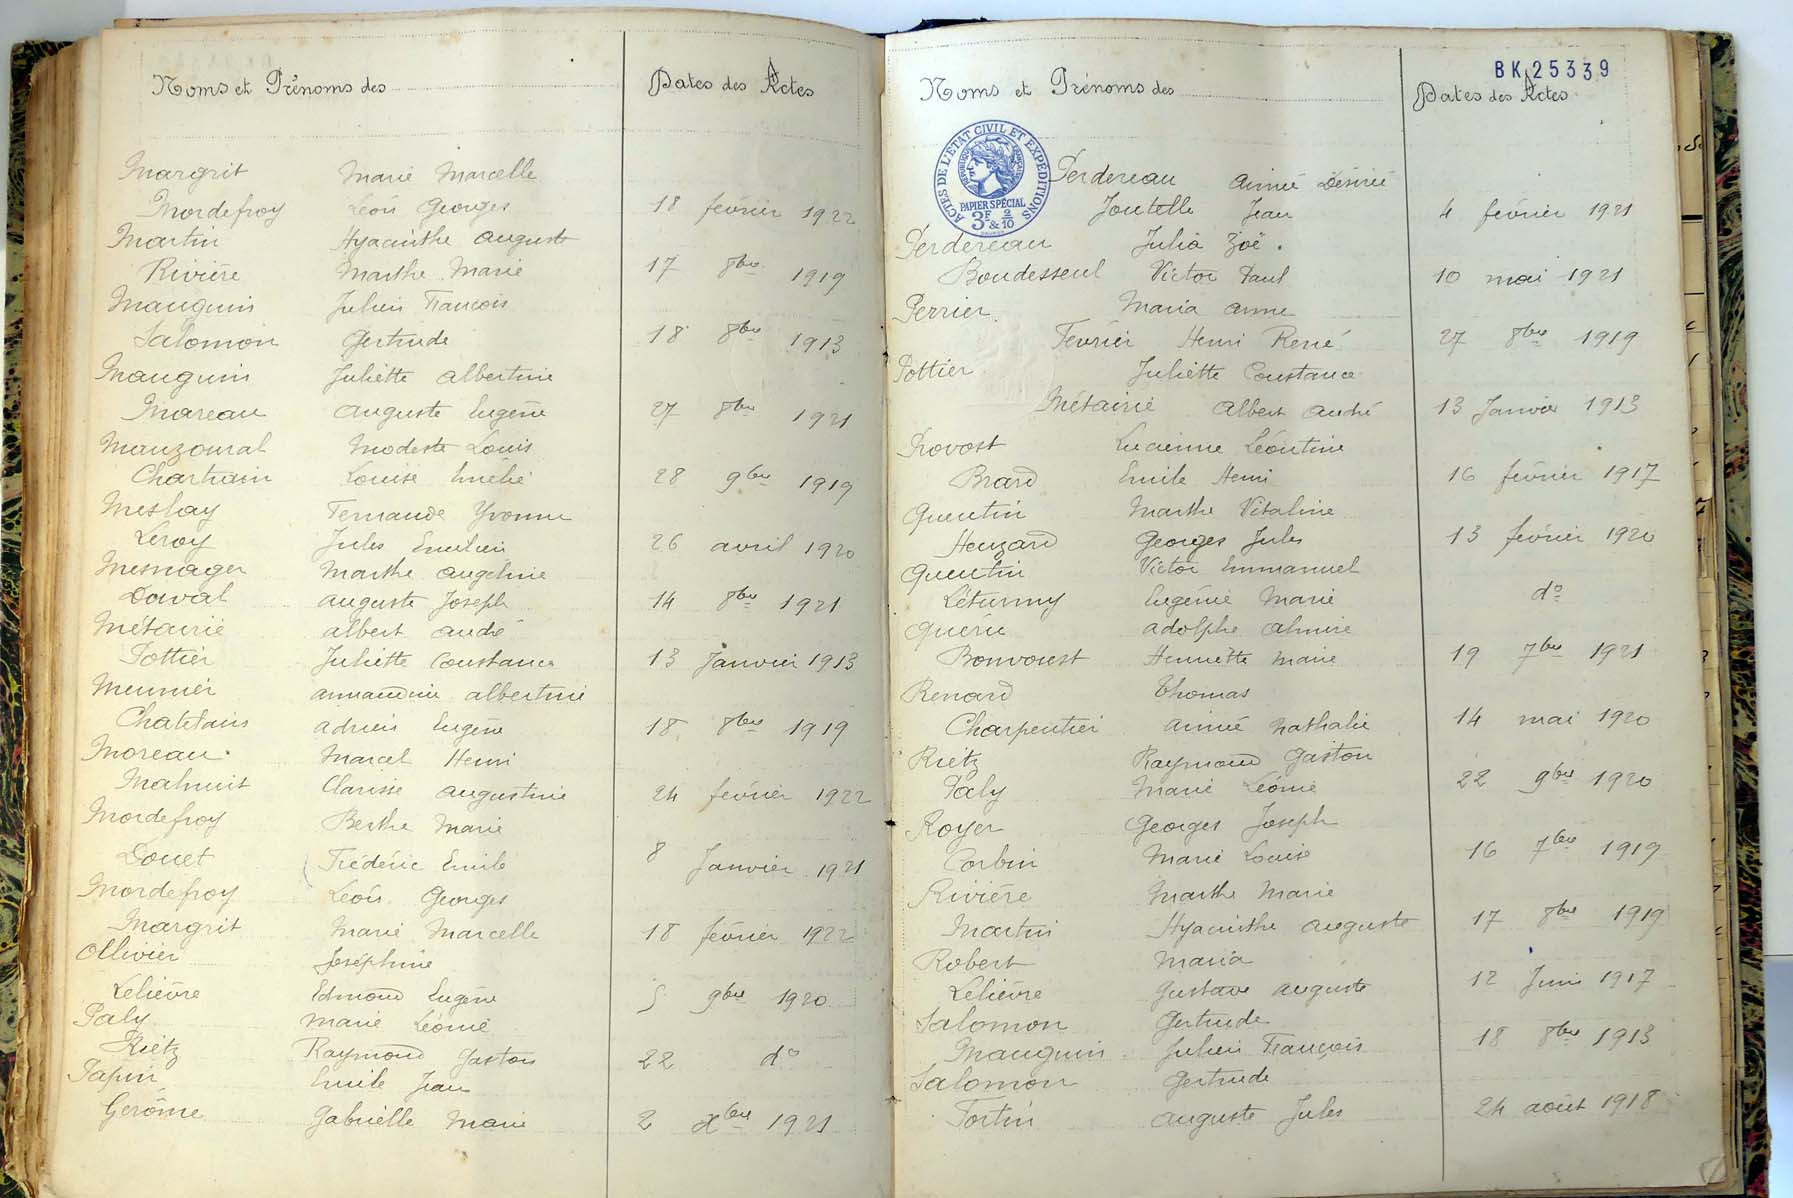 Noms et Prénoms des
Dates des Actes
Margrit Marie Marcelle
Mordefroy Léon Georges 18 février 1922
Martin Hyacinthe Auguste
Rivière Marthe Marie 17 8bre 1919
Mauguin Julien François
Salomon Gertrude 18 8bre 1913
Mauguin Juliette Albertine
Moreau Auguste Eugène 27 8bre 1921
Mauzoural Modeste Louis
Chartrain Louise Emélie 28 9bre 1919
Meslay Fernande Yvonne
Leroy Jules Emilien 26 avril 1920
Mesnager Marthe Angeline
Daval Auguste Joseph 14 8bre 1921
Métairie Albert André
Pottier Juliette Constance 13 Janvier 1913
Meunier Armandine Albertine
Chatelais Adrien Eugène 18 8bre 1919
Moreau Marcel Henri
Mahuit Clarisse Augustine 24 février 1922
Mordefroy Berthe Marie
Douet Frédéric Emile 8 Janvier 1921
Mordefroy Léon Georges
Margrit Marie Marcelle 18 février 1922
Ollivier Joséphine
Lelièvre Edmond Eugène 5 9bre 1920
Paly Marie Léonie
Rietz Raymond Gaston 22 do
Papin Emile Jean
Gerôme Gabrielle Marie 2 xbre 1921
BK 25339
Noms et Prénoms des
Dates des Actes
ACTES DE L'ETAT CIVIL ET EXPEDITIONS
PAPIER SPÉCIAL
3F & 2/10
Perdereau Aimée Désirée
Joutelle Jean 4 février 1921
Perdereau Julia Zoë.
Boudesseul Victor Paul 10 mai 1921
Perrier Maria Anne
Février Henri René 27 8bre 1919
Pottier Juliette Constance
Métairie Albert André 13 Janvier 1913
Provost Lucienne Léontine
Brard Emile Henri 16 février 1917
Quentin Marthe Vitaline
Heuzard Georges Jules 13 février 1920
Quentin Victor Emmanuel
Léturmy Eugénie Marie do
Quéru Adolphe Almire
Bonvoust Henriette Marie 19 7bre 1921
Renard Thomas
Charpentier Aimée Nathalie 14 mai 1920
Rietz Raymond Gaston
Paly Marie Léonie 22 9bre 1920
Royer Georges Joseph
Corbin Marie Louise 16 7bre 1919
Rivière Marthe Marie
Martin Hyacinthe Auguste 17 8bre 1919
Robert Maria
Lelièvre Gustave Auguste 12 Juin 1917
Salomon Gertrude
Mauguin Julien François 18 8bre 1913
Salomon Gertrude
Tortin Auguste Jules 24 août 1918